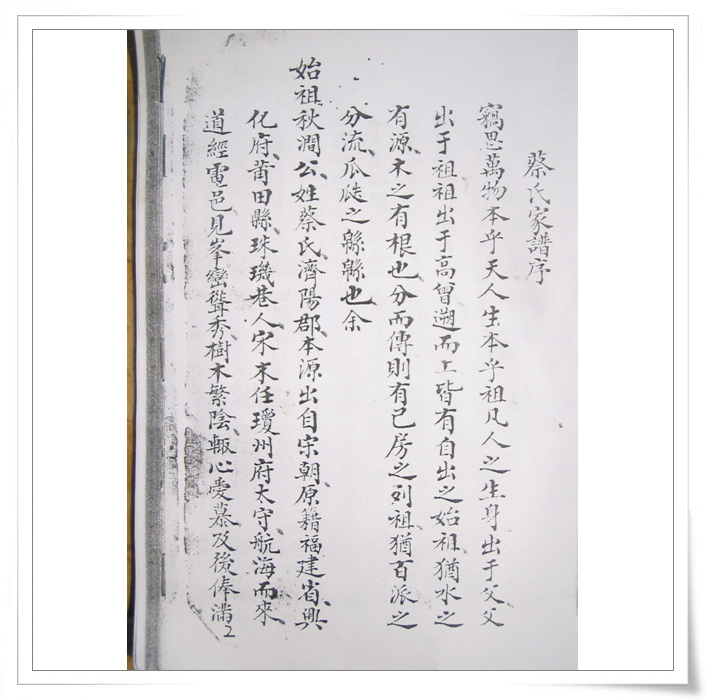 蔡氏家譜序
竊思萬物本乎天人生本乎祖凡人之生身出于父父
出于祖祖出于高曾遡而上皆有自出之始祖猶水之
有源木之有根也分而傳則有已房之列祖猶百派之
分流瓜瓞之緜緜也余
始祖秋澗公姓蔡氏濟陽郡本源出自宋朝原籍福建省興
化府莆田縣珠璣巷人宋末任瓊州府太守航海而來
道經電邑見峯巒聳秀樹木繁陰輙心愛慕及後俸滿
2